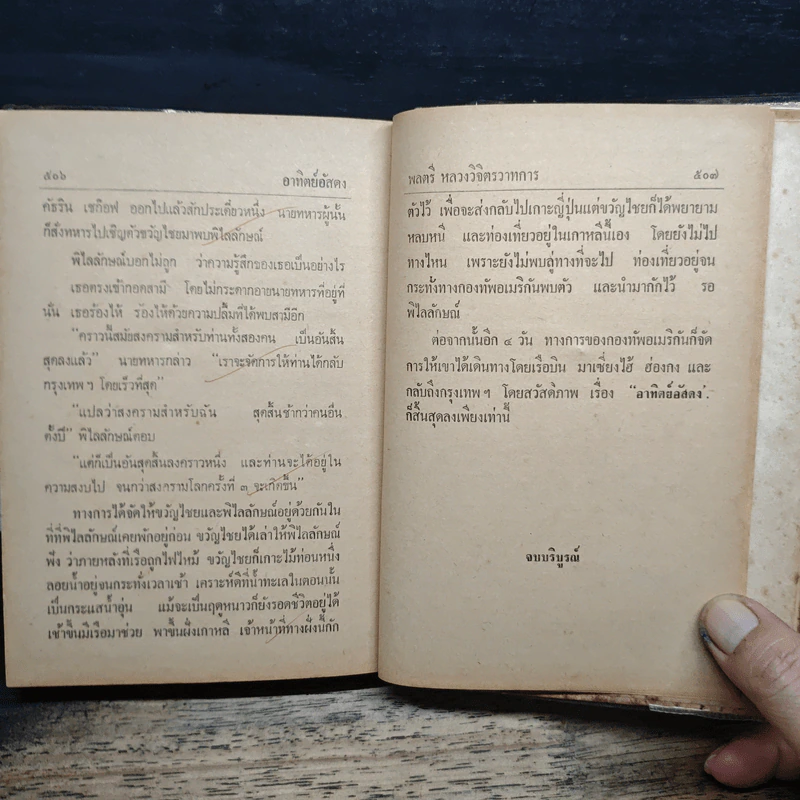 ๕๐๖ อาทิตย์อัสดง
คัธริน เชก๊อฟ ออกไปแล้วสักประเดี๋ยวหนึ่ง นายทหารผู้นั้น
ก็สั่งทหารไปเชิญตัวขวัญไชยมาพบพิไลลักษณ์
พิไลลักษณ์บอกไม่ถูก ว่าความรู้สึกของเธอเป็นอย่างไร
เธอตรงเข้ากอดสามี โดยไม่กระดากอายนายทหารที่อยู่ที่
นั้น เธอร้องไห้ ร้องไห้ด้วยความปลื้มที่ได้พบสามีอีก
“คราวนี้สมัยสงครามสำหรับท่านทั้งสองคน เป็นอันสิ้น
สุดลงแล้ว” นายทหารกล่าว “เราจะจัดการให้ท่านได้กลับ
กรุงเทพ ฯ โดยเร็วที่สุด”
“แปลว่าสงครามสำหรับฉัน สุดสิ้นช้ากว่าคนอื่น
ตั้งปี” พิไลลักษณ์ตอบ
“แต่ก็เป็นอันสุดสิ้นลงคราวหนึ่ง และท่านจะได้อยู่ใน
ความสงบไป จนกว่าสงครามโลกครั้งที่ ๓ จะเกิดขึ้น”
ทางการได้จัดให้ขวัญไชยและพิไลลักษณ์อยู่ด้วยกันใน
ที่ที่พิไลลักษณ์เคยพักอยู่ก่อน ขวัญไชยได้เล่าให้พิไลลักษณ์
ฟัง ว่าภายหลังที่เรือถูกไฟไหม้ ขวัญไชยก็เกาะไม้ท่อนหนึ่ง
ลอยน้ำอยู่จนกระทั่งเวลาเช้า เคราะห์ดีที่น้ำทะเลในตอนนั้น
เป็นกระแสน้ำอุ่น แม้จะเป็นฤดูหนาวก็ยังรอดชีวิตอยู่ได้
เช้าขึ้นมีเรือมาช่วย พาขึ้นฝั่งเกาหลี เจ้าหน้าที่ทางฝั่งนี้กัก
พลตรี หลวงวิจิตรวาทการ ๕๐๗
ตัวไว้ เพื่อจะส่งกลับไปเกาะญี่ปุ่นแต่ขวัญไชยก็ได้พยายาม
หลบหนี และท่องเที่ยวอยู่ในเกาหลีนี้เอง โดยยังไม่ไป
ทางไหน เพราะยังไม่พบลู่ทางที่จะไป ท่องเที่ยวอยู่จน
กระทั่งทางกองทัพอเมริกันพบตัว และนำมากักไว้ รอ
พิไลลักษณ์
ต่อจากนั้นอีก ๔ วัน ทางการของกองทัพอเมริกันก็จัด
การให้เขาได้เดินทางโดยเรือบิน มาเซี่ยงไฮ้ ฮ่องกง และ
กลับถึงกรุงเทพ ฯ โดยสวัสดิภาพ เรื่อง “อาทิตย์อัสดง”.
ก็สิ้นสุดลงเพียงเท่านี้
จบบริบูรณ์